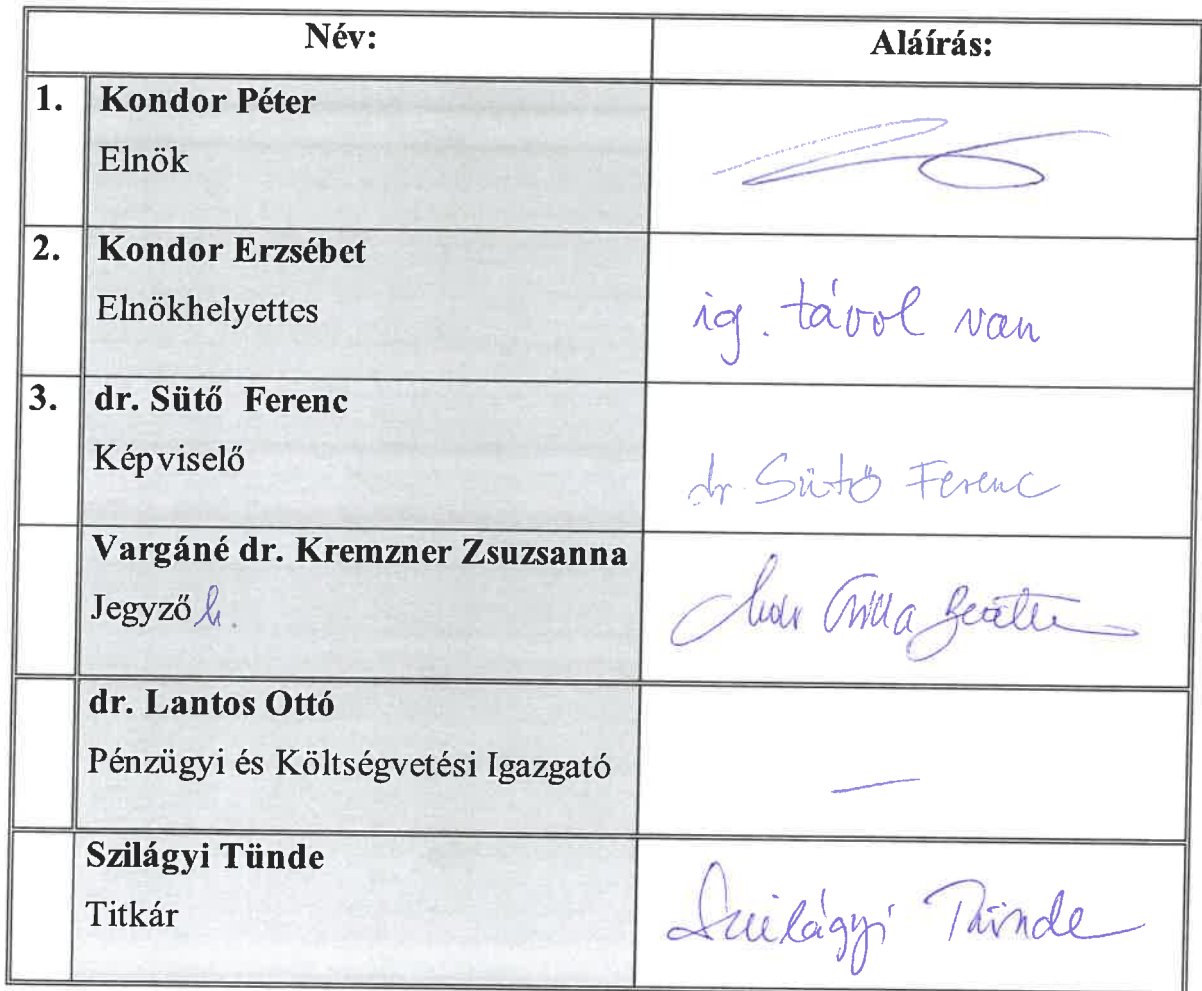 Név: Aláírás:
1. Kondor Péter
Elnök
2. Kondor Erzsébet
Elnökhelyettes
ig. távol van
3. dr. Sütő Ferenc
Képviselő
dr Sütő Ferenc
Vargáné dr. Kremzner Zsuzsanna
Jegyző h.
dr. Lantos Ottó
Pénzügyi és Költségvetési Igazgató
—
Szilágyi Tünde
Titkár
Szilágyi Tünde